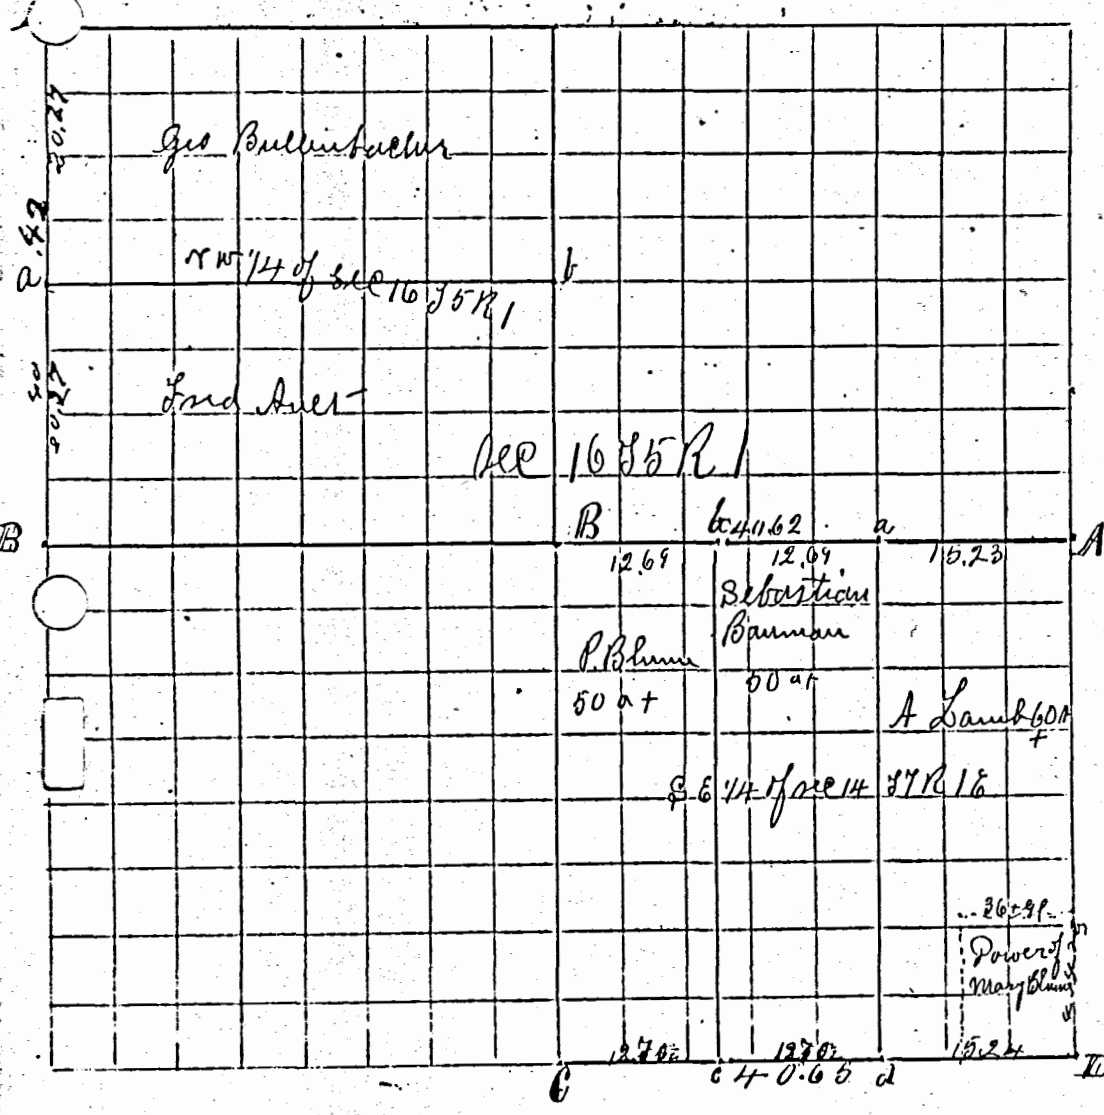 20.27
Geo
a.
42
N W 1/4 of Sec 16 T5 R 1
b
40
20.27
Fred Auer
Sec 16 T5 R 1
B
B
b
40.62
a
A
12.69
12.69
15.23
Sebastian
Bauman
P. Blum
50 a+
50 a+
A Lamb 60A
+
S E 1/4 of sec 14 T7 R 1 E
Dower of
Mary Blum
12.70½
12.70½
15.24
C
c
40.65
d
D